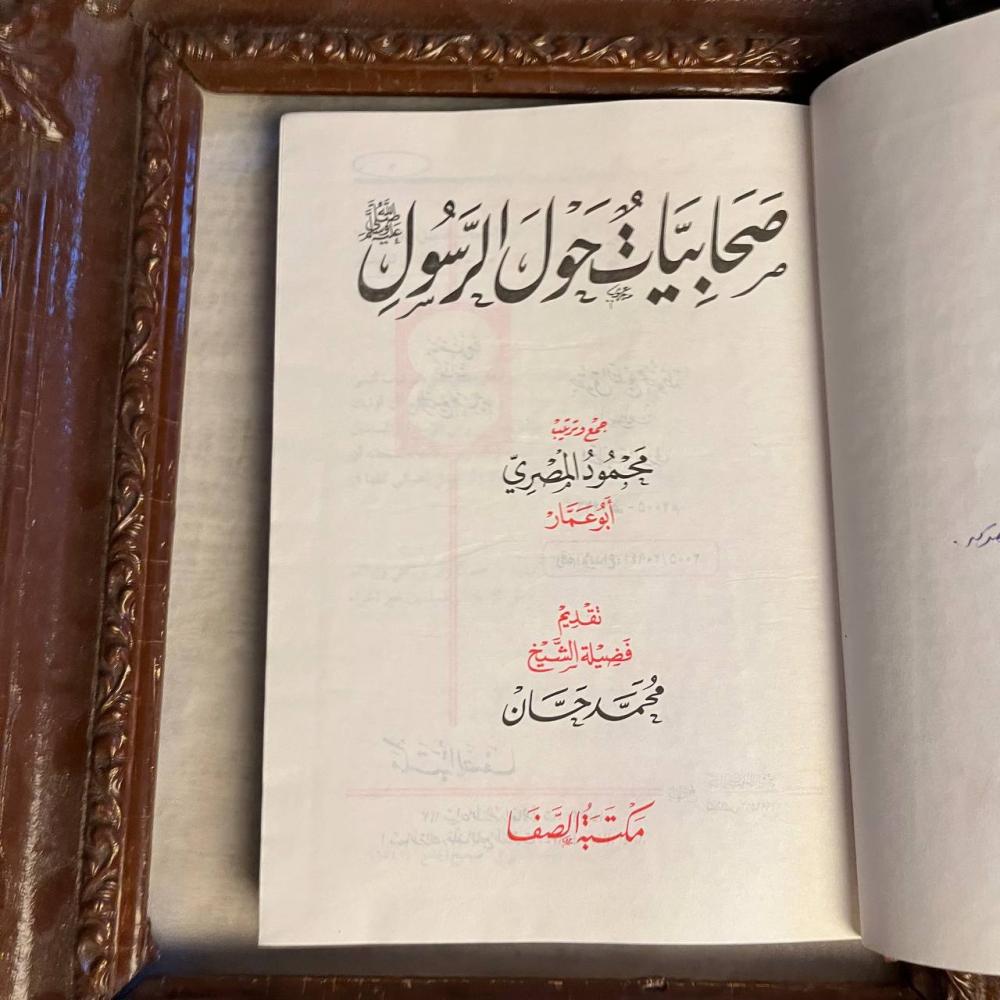 صَحَابِيَّاتٌ حَوْلَ الرَّسُولِ ﷺ
جمع وترتيب
مَحْمُودُ المْصْرِيّ
أَبُو عَمَّار
تقْدِيمْ
فَضِيْلة الشَّيْخ
محُمَّد حَسَّانْ
مَكتَبَةُ الصَّفَا